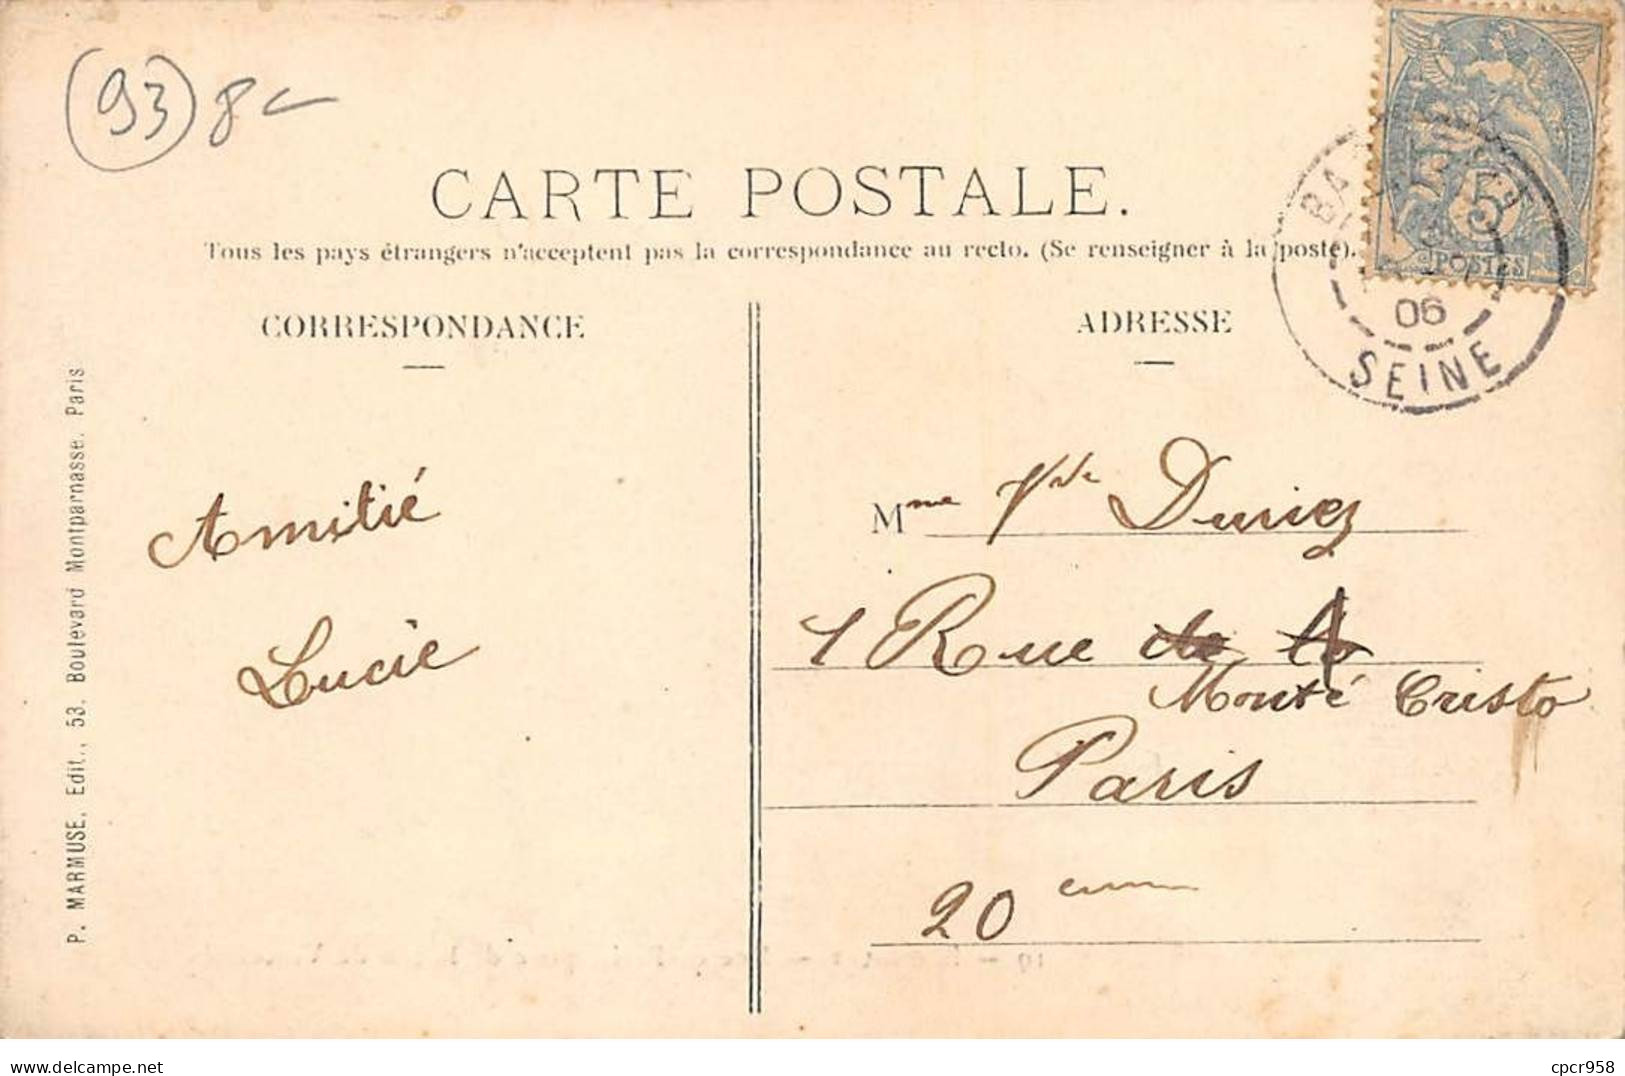 (93) 8
CARTE POSTALE.
Tous les pays étrangers n'acceptent pas la correspondance au recto. (Se renseigner à la poste).
CORRESPONDANCE
ADRESSE
5
POSTES
06
SEINE
P. MARMUSE, Edit., 53, Boulevard Montparnasse, Paris
Amitié
Lucie
Mme Vve Duriez
1 Rue de la
Monté Cristo
Paris
20eme
delcampe.net
cpcr958